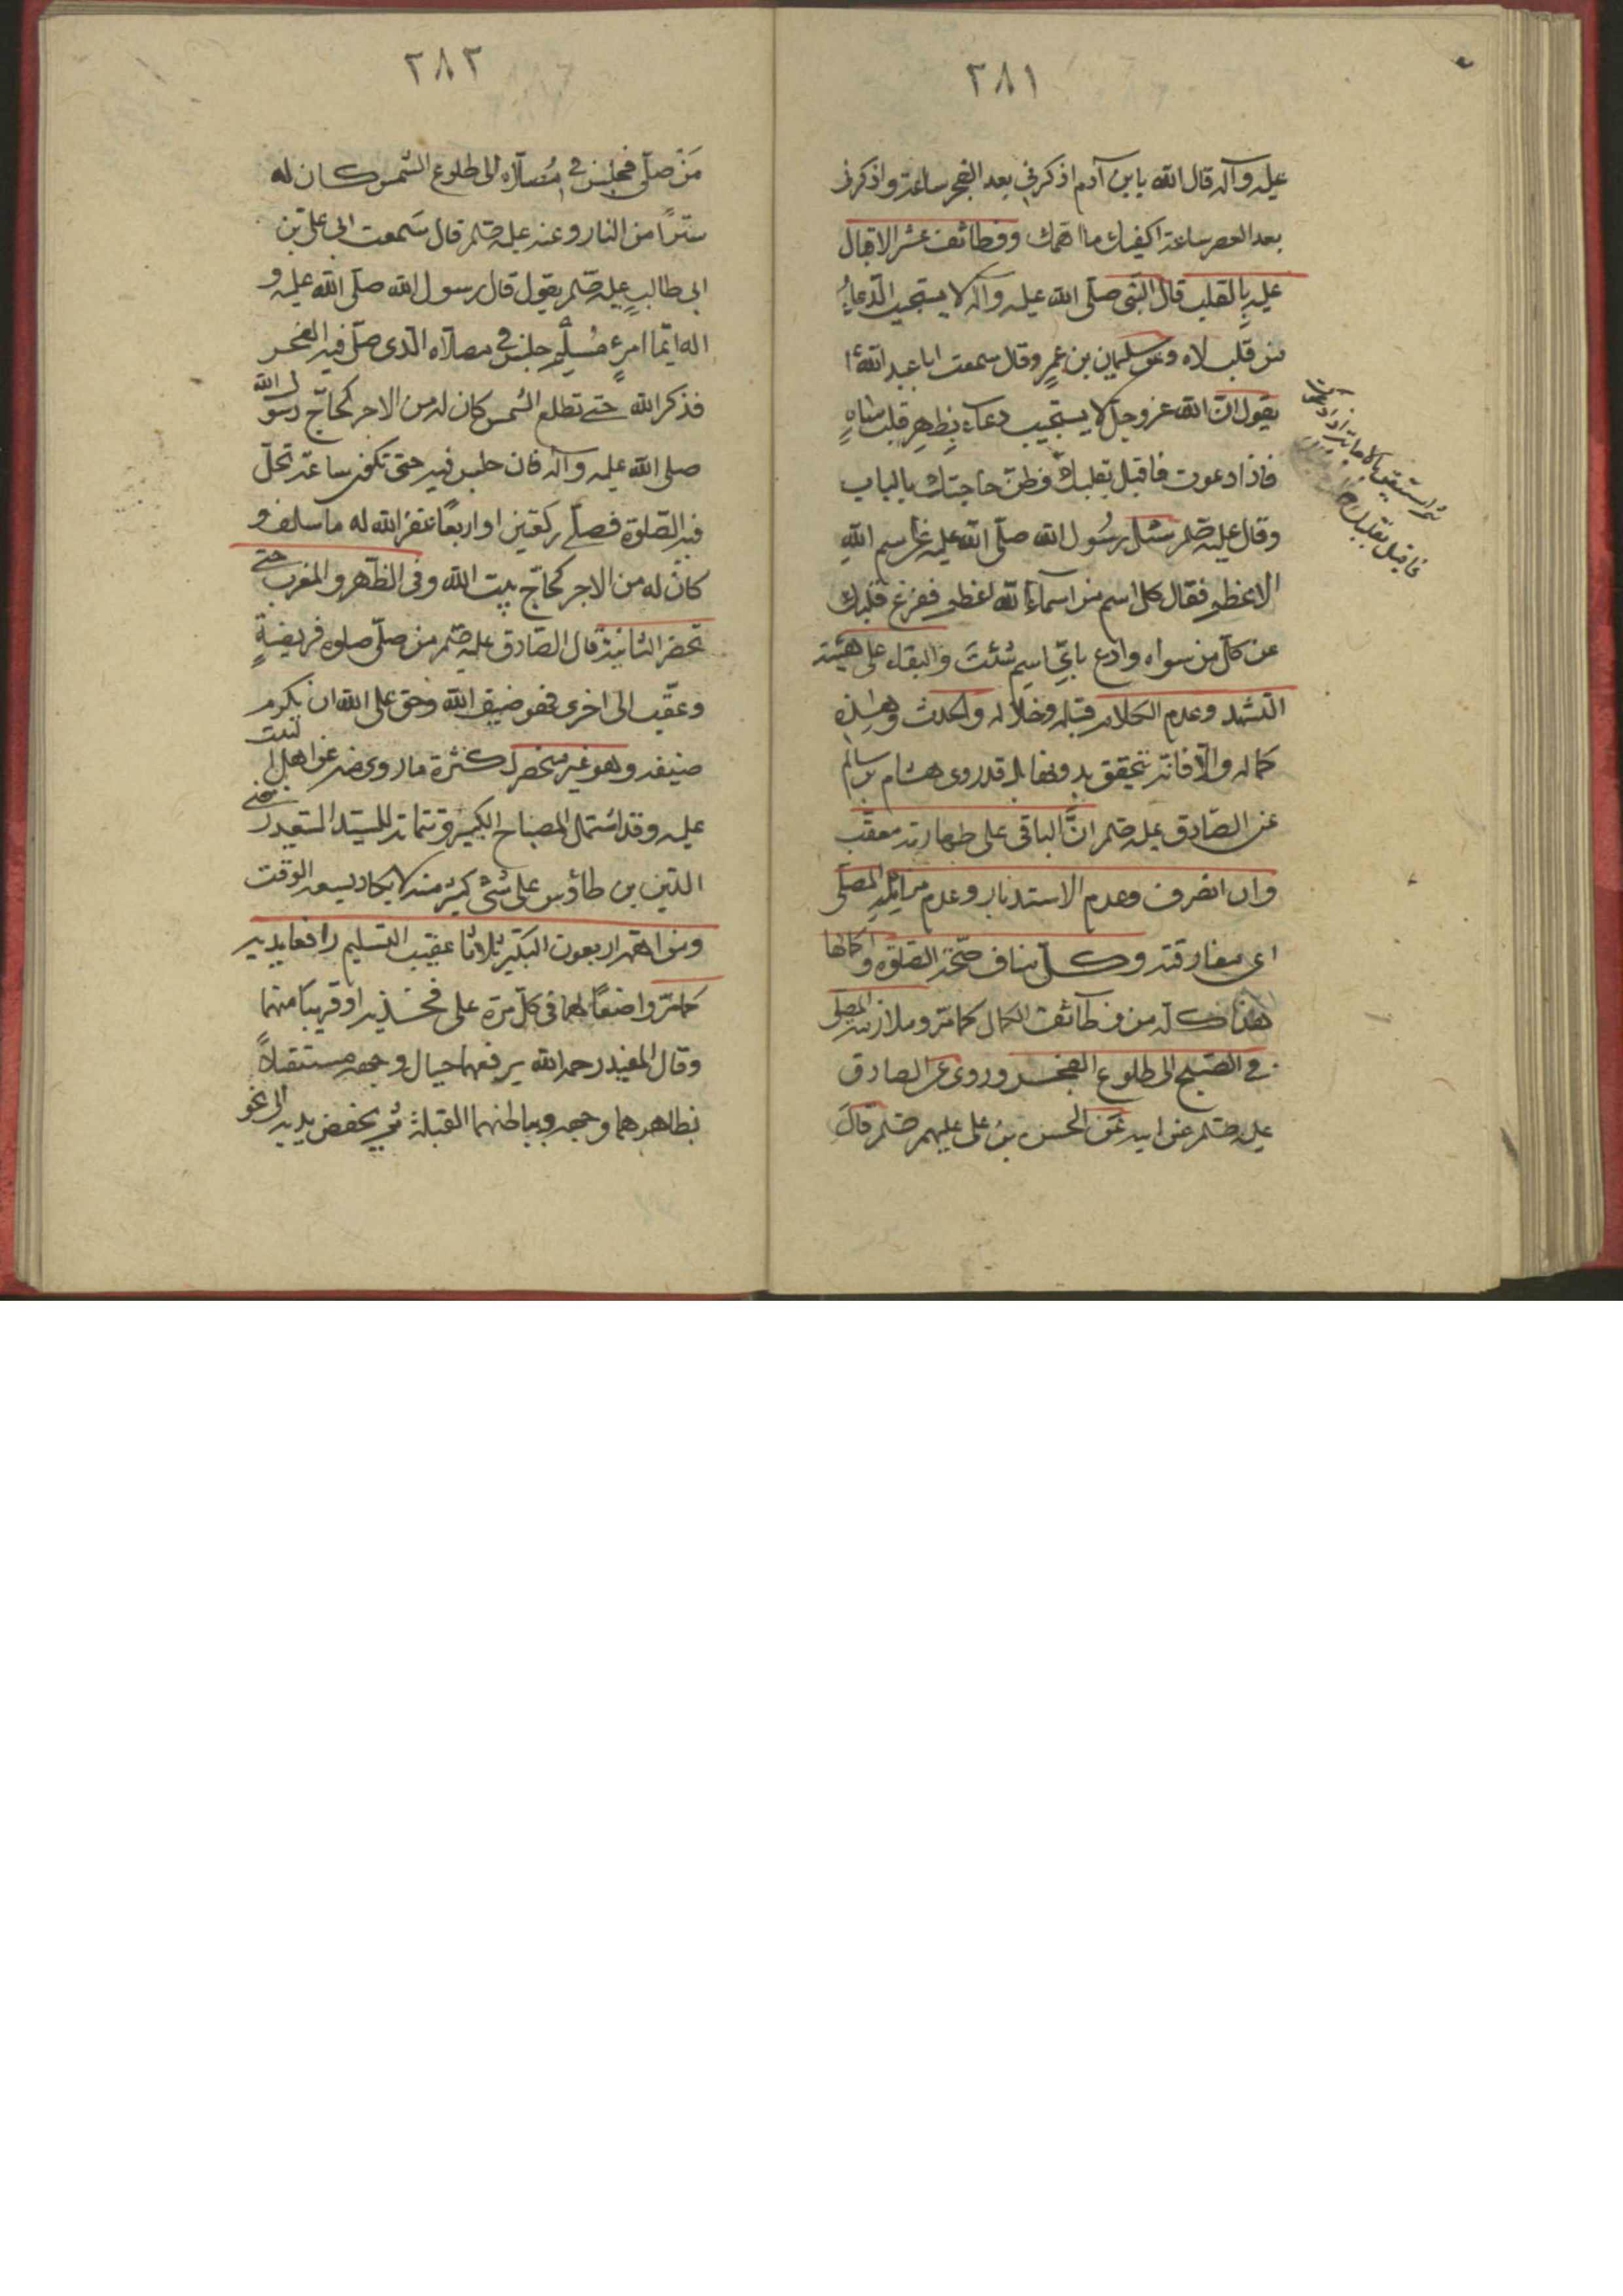 ٢٨١
عليه وآله قال الله يا بن آدم اذكرني بعد الفجر ساعة واذكرني
بعد العصر ساعة اكفيك ما اهمك ووظائفه عشر الاقبال
عليه بالقلب قال النبى صلّى الله عليه وآله لا يستجيب الدّعاءُ
من قلب لاه وعن سليمان بن عمرٍ وقال سمعت ابا عبد اللّه ٤
يقول انّ اللّه عز وجل لا يستجيب دعاء بِظهرِ قلب ساهٍ
فاذا دعوت فاقبل بقلبك وظنّ حاجتك بالباب
وقال عليه صلم سئل رسُول الله صلّى الله عليه عن اسم اللّهِ
الاعظم فقال كل اسم من اسماء اللّه اعظم ففرغ قلبك
عن كلّ من سواه وادع باىِّ اسمٍ شئتَ والبقاء على هيئة
التشهد وعدم الكلام قبله وخلاله والحدث وهذه
كماله والّا فانه يتحقق بدونها بل قد روى هشام بن سالم
عن الصّادق عليه صلم انَّ الباقى على طهارته معقّب
وان انصرف وعدم الاستدبار وعدم مزايلة المصلّى
اى مفارقته وكلّ مناف صحّة الصّلوة او كمالها
هذا كله من وظائف الكمال كما مرّ وملازمة المصلّى
في الصّبح الى طلوع الفجر وروى عن الصادق
عليه صلم عن ابيه عن الحسن بن على عليهم صلم قالَ
ثم استيقن بالاجابة
فاقبل بقلبك
٢٨٢
مَنْ صلّى فجلس في مُصلّاه الى طلوع الشّمس كان له
ستراً من النار وعنه عليه صلم قال سَمعت ابى على بن
ابى طالبٍ عليه صلم يقول قال رسول الله صلّى اللّه عليه و
اله ايّما امرءٍ مُسلمٍ جلس في مصلّاه الّذى صلّى فيه الفجر
فذكر اللّه حتى تطلع الشمس كان له من الاجر كحاجّ رسول الله
صلى اللّه عليه وآله فان جلس فيه حتى تكون ساعة تحلّ
فيه الصّلوة فصلّى ركعتين او اربعًا غفر اللّه له ما سلف و
كان له من الاجر كحاجّ بيت اللّه وفى الظّهر والمغرب حتى
تحضر الثانية قال الصّادق عليه صلم من صلّى صلوة فريضةٍ
وعقّب الى اخرى فهو ضيف اللّه وحق على اللّه ان يكرم
ضيفه وهو غير منحصر لكثرة ما روى منه عن اهل البيت
عليه وقد اشتمل المصباح الكبير وتتماته للسيّد السّعيد رضى
الدّين بن طاؤس على شئ كثير منه لا يكاد يسعه الوقت
ومن اهمه اربعون التكبير ثلاثا عقيب التسليم رافعا يديه
كما مرّ واضعًا لهما فى كلّ مرّة على فخذيه او قريبا منهما
وقال المفيد رحمه اللّه يرفعهما حيال وجهه مستقبلاً
بظاهرهما وجهه وبباطنهما القبلة ثم يخفض يديه الى نحو